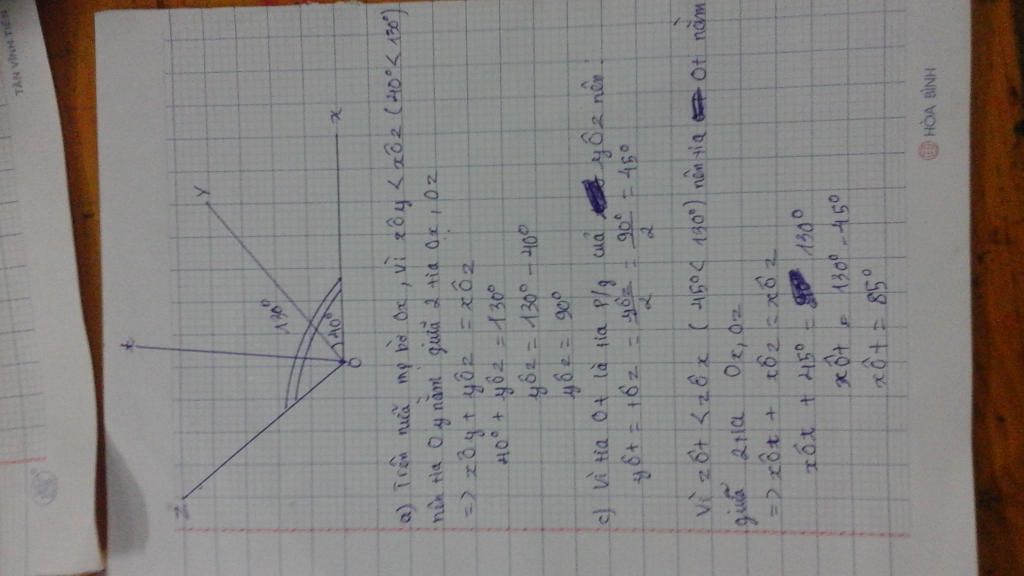 TÂN VĨNH TIẾN
t
y
z
130°
40°
O
x
a) Trên nửa mp bờ Ox, vì xÔy < xÔz (40° < 130°)
nên tia Oy nằm giữa 2 tia Ox, Oz
=> xÔy + yÔz = xÔz
40° + yÔz = 130°
yÔz = 130° - 40°
yÔz = 90°
c) Vì tia Ot là tia p/g của yÔz nên:
yÔt = tÔz = yÔz/2 = 90°/2 = 45°
Vì zÔt < zÔx (45° < 130°) nên tia Ot nằm
giữa 2 tia Ox, Oz
=> xÔx + xÔz = xÔz
xÔx + 45° = 130°
xÔt = 130° - 45°
xÔt = 85°
HÒA BÌNH